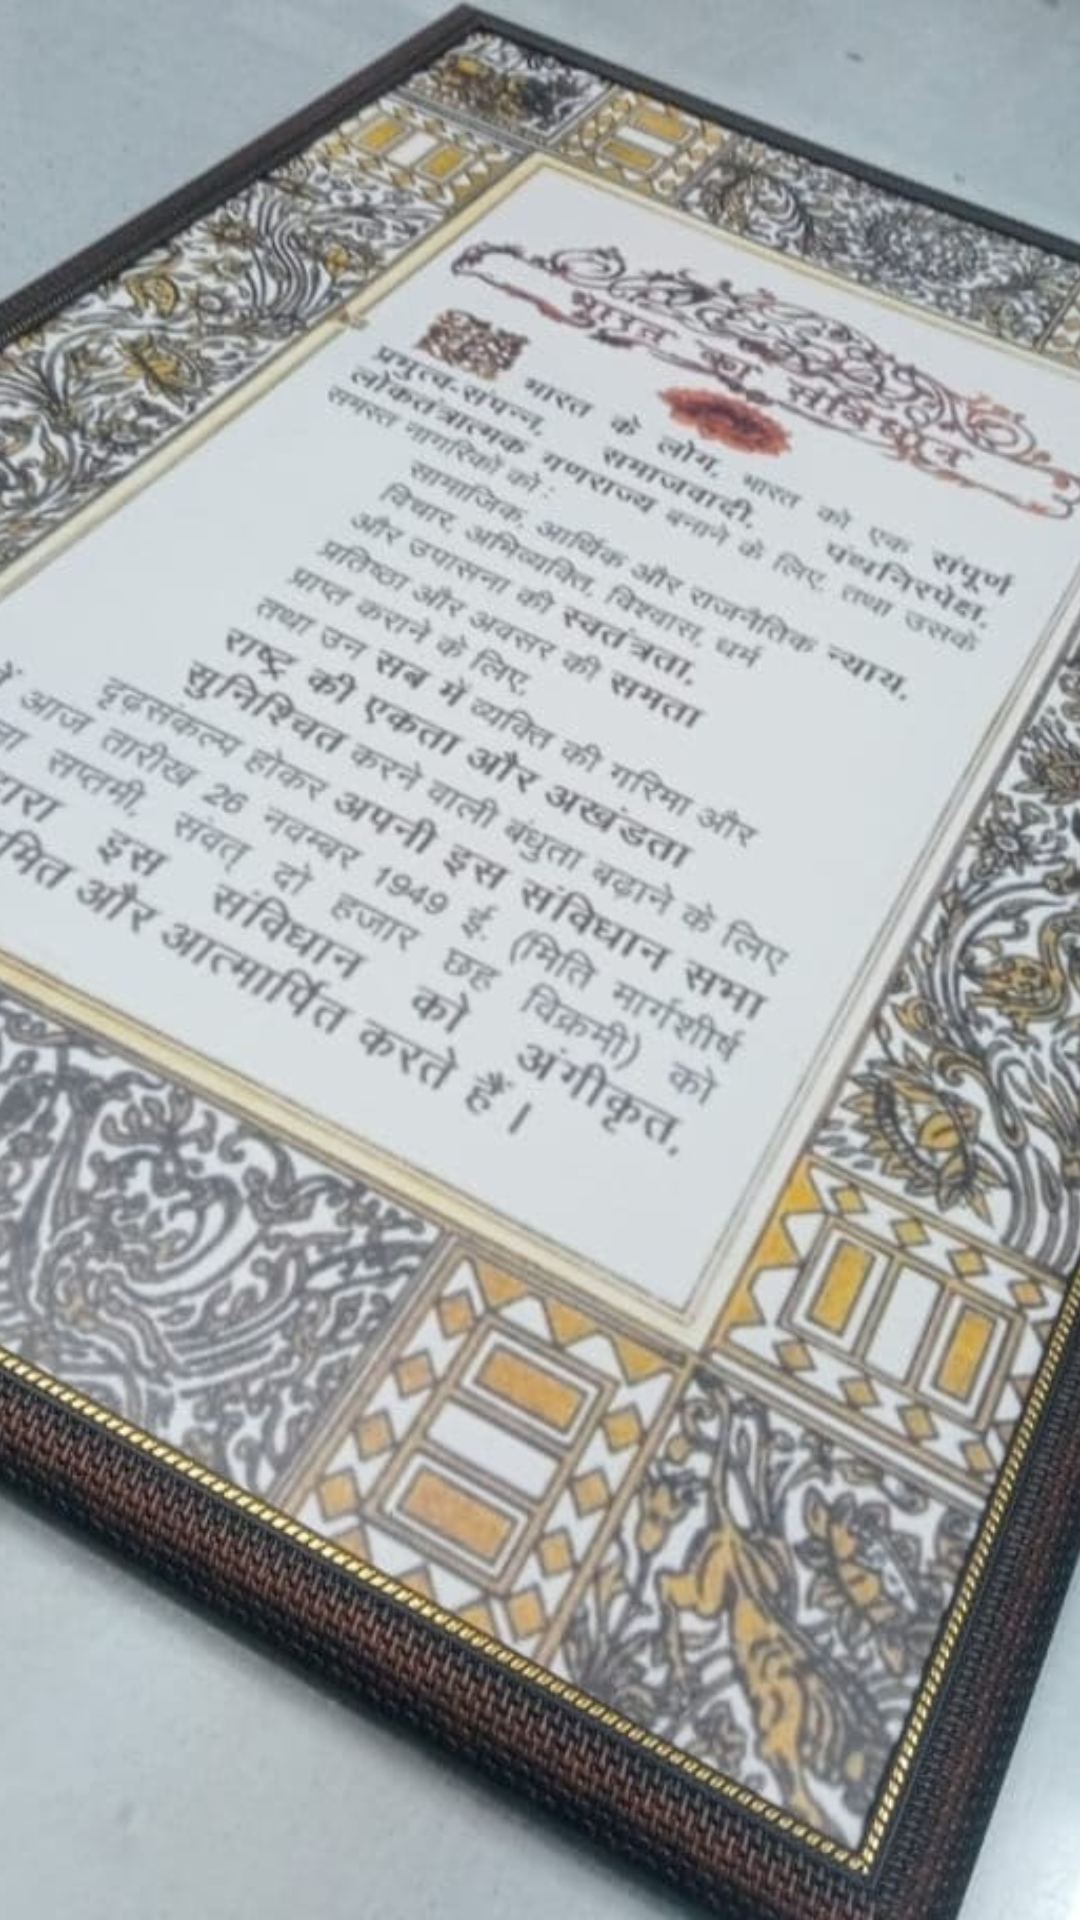 भारत का संविधान
भारत के लोग, भारत को एक संपूर्ण
प्रभुत्व-संपन्न, समाजवादी, पंथनिरपेक्ष,
लोकतंत्रात्मक गणराज्य बनाने के लिए, तथा उसके
समस्त नागरिकों को:
सामाजिक, आर्थिक और राजनैतिक न्याय,
विचार, अभिव्यक्ति, विश्वास, धर्म
और उपासना की स्वतंत्रता,
प्रतिष्ठा और अवसर की समता
प्राप्त कराने के लिए,
तथा उन सब में व्यक्ति की गरिमा और
राष्ट्र की एकता और अखंडता
सुनिश्चित करने वाली बंधुता बढ़ाने के लिए
दृढ़संकल्प होकर अपनी इस संविधान सभा
में आज तारीख 26 नवम्बर 1949 ई. (मिति मार्गशीर्ष
सप्तमी, संवत् दो हजार छह विक्रमी) को
इस संविधान को अंगीकृत,
और आत्मार्पित करते हैं।